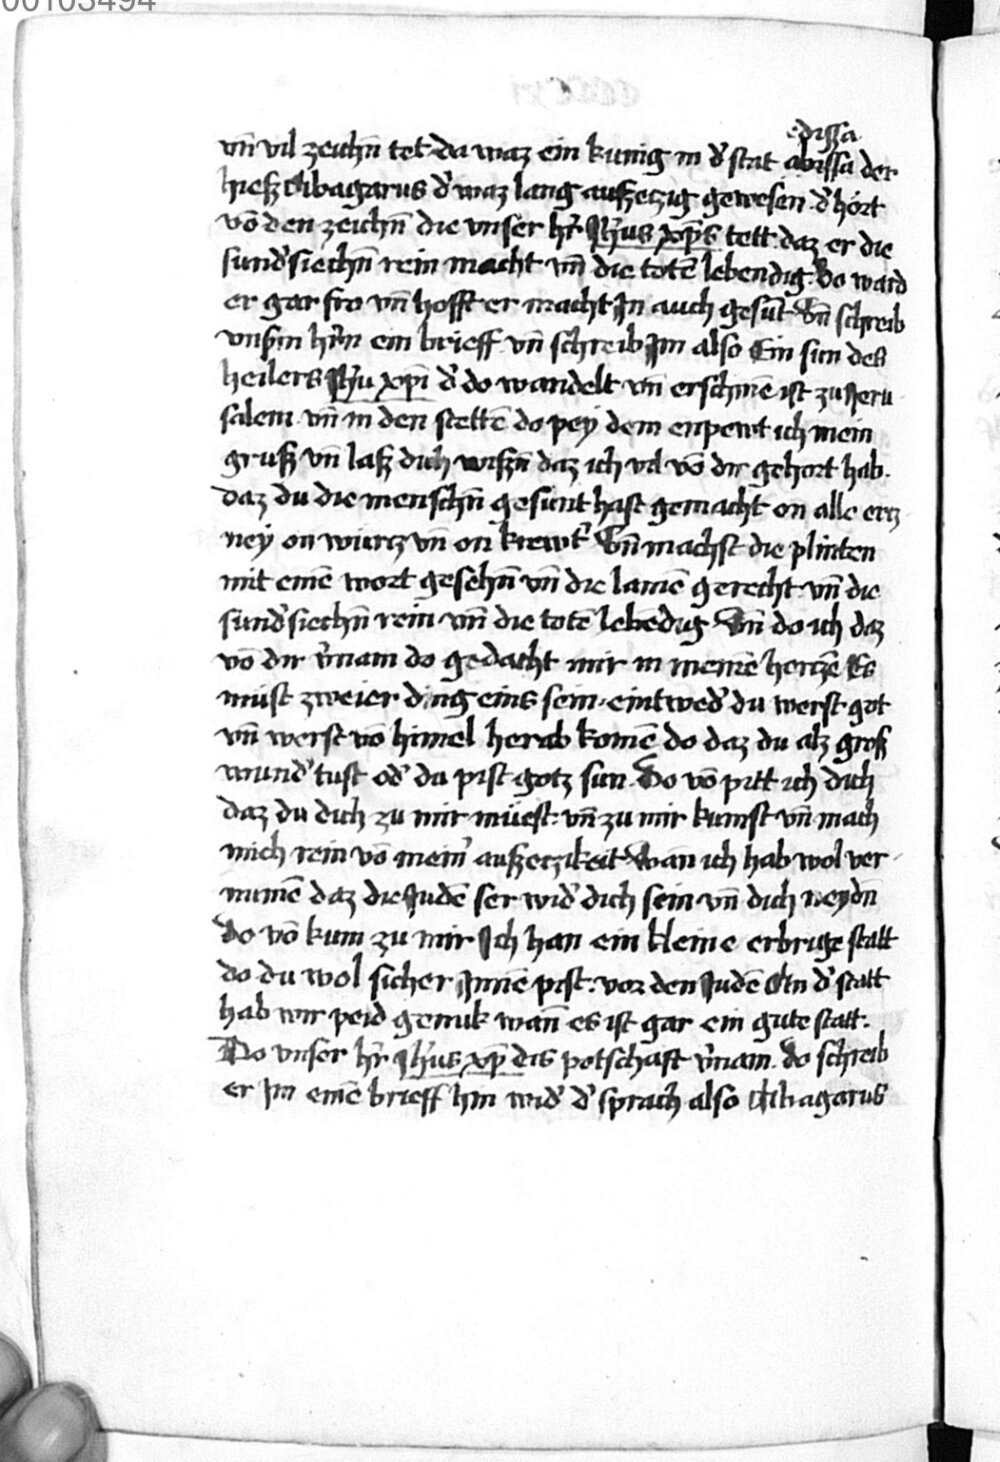 00103494
edissa
vn̄ vil zeichn̄ tet da waz ein kunig in d' stat abissa der
hiesz Abagarus d' waz lang auszeczig gewesen d' hort
vō den zeichn̄ die vnser hr̄ Jh̄us xp̄s tett daz er die
sund'siechn̄ rein macht vn̄ die totē lebendig Do ward
er gar fro vn̄ hofft er macht Jn auch gesūt Vn̄ schreib
vnsm̄ hr̄n ein brieff vn̄ schreib Jm also Ein sun des
heilers Jh̄u xp̄i d' do wandelt vn̄ erschinē ist zu Jeru
salem vn̄ in den stettē do pey dem enpewt ich mein
grusz vn̄ lasz dich wiszn̄ daz ich vil vō dir gehort hab
daz du die menschn̄ gesunt hast gemacht on alle ercz
ney on wurcz vn̄ on krewt' Vn̄ machst die plinten
mit einē wort gesehn̄ vn̄ die lamē gerecht vn̄ die
sund'siechn̄ rein vn̄ die totē lebēdig Vn̄ do ich daz
vō dir v'nam do gedacht mir in meinē herczē Es
must zweier ding eins sein eintwed' du werst got
vn̄ werst vō himel herab komē do daz du alz grosz
wund' tust od' du pist gotz sun Do vō pitt ich dich
daz du dich zu mir müest vn̄ zu mir kumst vn̄ mach
mich rein vō mein' auszeczikeit Wan ich hab wol ver
numē daz die Judē ser wid' dich sein vn̄ dich neydn̄
do vō kum zu mir Ich han ein kleine erbrige statt
do du wol sicher Jnnē pist vor den Judē An d' statt
hab wir peid genuk wan̄ es ist gar ein gute statt
Do vnser hr̄ Jh̄us xp̄s dis potschaft v'nam do schreib
er Jm einē brieff hin wid' d' sprach also Abagarus